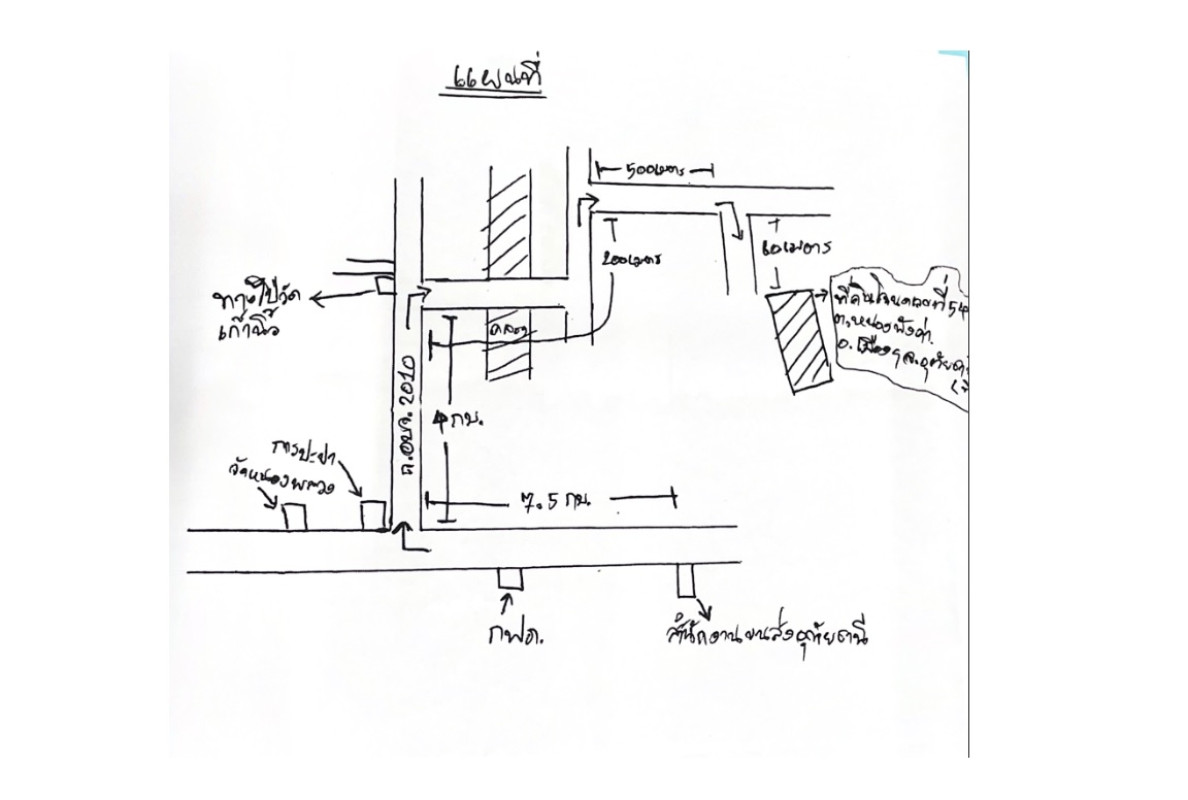 แผนที่
500เมตร
200เมตร
60เมตร
ทางไปวัด
เก้านิ้ว
คลอง
ที่ดินโฉนดเลขที่ 54
ต.หนองพังค่า
อ.เมืองฯ จ.อุทัยธา
ถ.อบจ. 2010
4 กม.
การปะปา
วัดหนองพลวง
7.5 กม.
กฟภ.
สำนักงานขนส่งอุทัยธานี